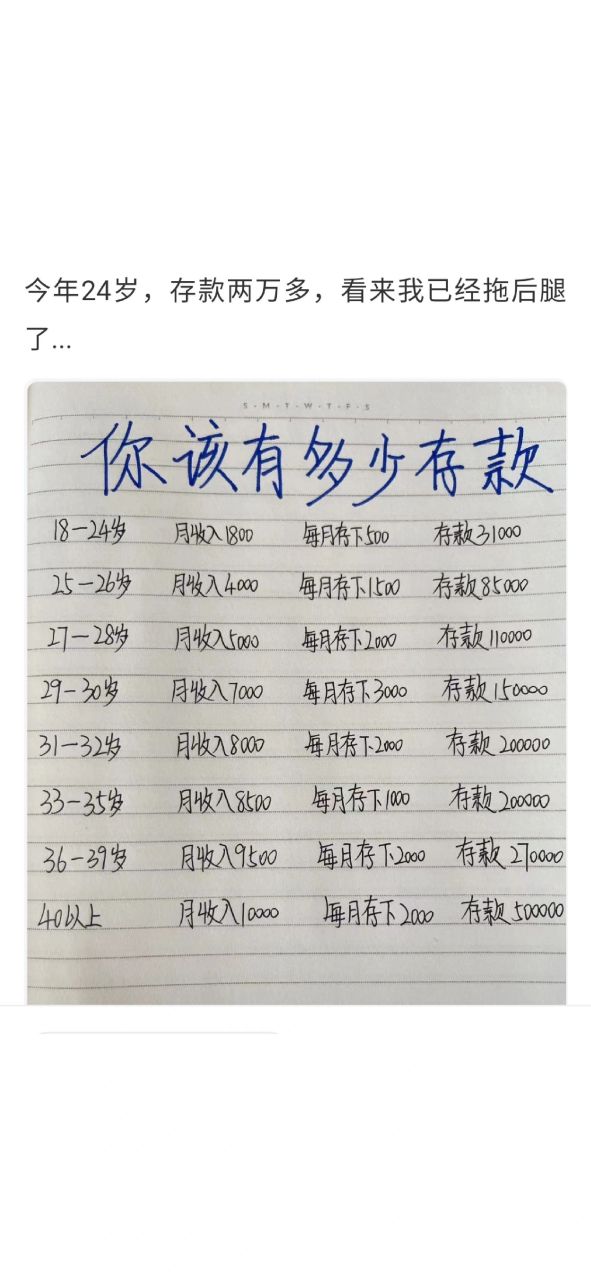 今年24岁，存款两万多，看来我已经拖后腿
了...
S·M·T·W·T·F·S
你该有多少存款
18-24岁 月收入1800 每月存下500 存款31000
25-26岁 月收入4000 每月存下1500 存款85000
27-28岁 月收入5000 每月存下2000 存款110000
29-30岁 月收入7000 每月存下3000 存款150000
31-32岁 月收入8000 每月存下2000 存款200000
33-35岁 月收入8500 每月存下1000 存款200000
36-39岁 月收入9500 每月存下2000 存款270000
40以上 月收入10000 每月存下2000 存款500000